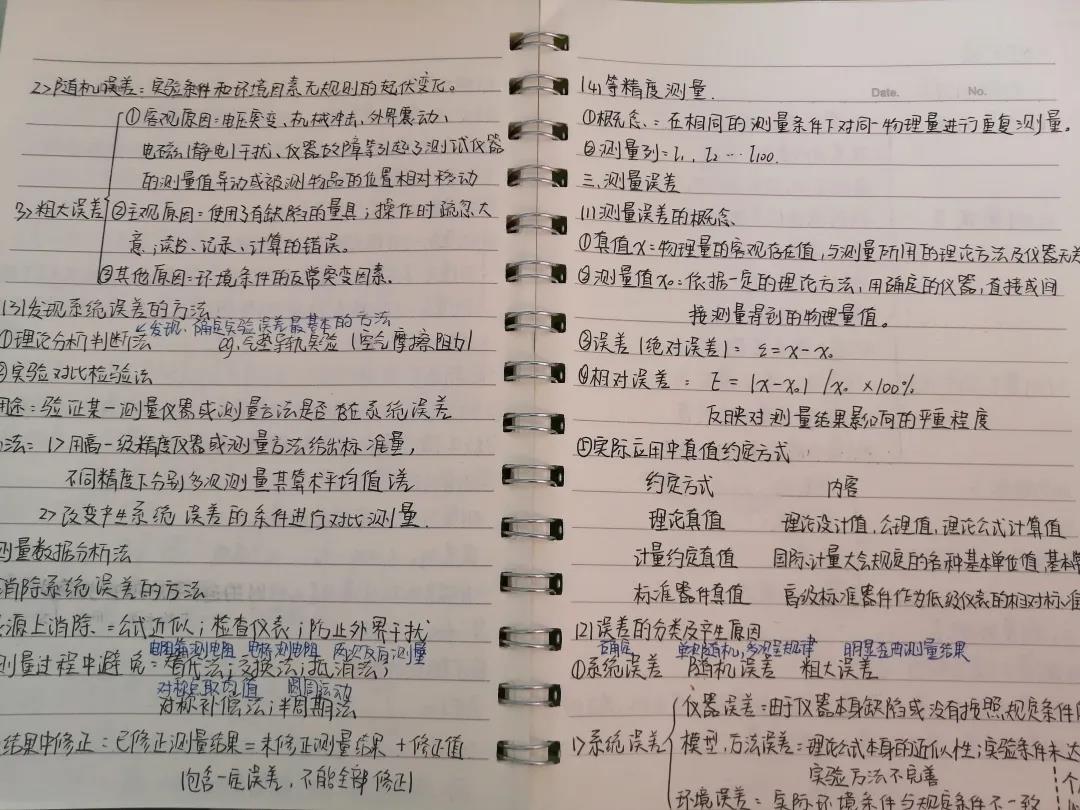 2>随机误差：实验条件和环境因素无规则的起伏变化。
①客观原因：电压突变、机械冲击、外界震动、
电磁(静电)干扰、仪器故障等引起了测试仪器
的测量值异动或被测物品的位置相对移动
3>粗大误差 ②主观原因：使用了有缺陷的量具；操作时疏忽大
意；读书、记录、计算的错误。
③其他原因：环境条件的反常突变因素。
(3)发现系统误差的方法
发现、确定实验误差最基本的方法
①理论分析判断法 eg.气垫导轨实验(空气摩擦阻力)
②实验对比检验法
用途：验证某一测量仪器或测量方法是否存在系统误差
法：1>用高一级精度仪器或测量方法给出标准量，
不同精度下分别多次测量其算术平均值误差
2>改变产生系统误差的条件进行对比测量.
测量数据分析法
消除系统误差的方法
源上消除：公式近似；检查仪表；防止外界干扰
电阻箱测电阻 电桥测电阻 两次反向测量
测量过程中避免：替代法；交换法；抵消法；
对称点取均值 圆周运动
对称补偿法；半周期法
结果中修正：已修正测量结果=未修正测量结果+修正值
(包含一定误差，不能全部修正)
Date. No.
(4)等精度测量.
①概念：在相同的测量条件下对同一物理量进行重复测量。
②测量列：I₁、I₂…I₁₀₀.
三、测量误差
(1)测量误差的概念、
①真值x：物理量的客观存在值，与测量所用的理论方法及仪器无关
②测量值x₀：依据一定的理论方法，用确定的仪器，直接或间
接测量得到的物理量值。
③误差(绝对误差)：ε=x-x₀
④相对误差：E=|x-x₀|/x₀×100%
反映对测量结果影响的严重程度
⑤实际应用中真值约定方式
约定方式 内容
理论真值 理论设计值，公理值，理论公式计算值
计量约定真值 国际计量大会规定的各种基本单位值，基本
标准器件真值 高级标准器件作为低级仪表的相对标准
(2)误差的分类及产生原因
确定 单次随机，多次呈规律 明显歪曲测量结果
①系统误差 随机误差 粗大误差
仪器误差：由于仪器本身缺陷或没有按照规定条件
1>系统误差 模型，方法误差：理论公式本身的近似性；实验条件未达
实验方法不完善
环境误差：实际环境条件与规定条件不一致